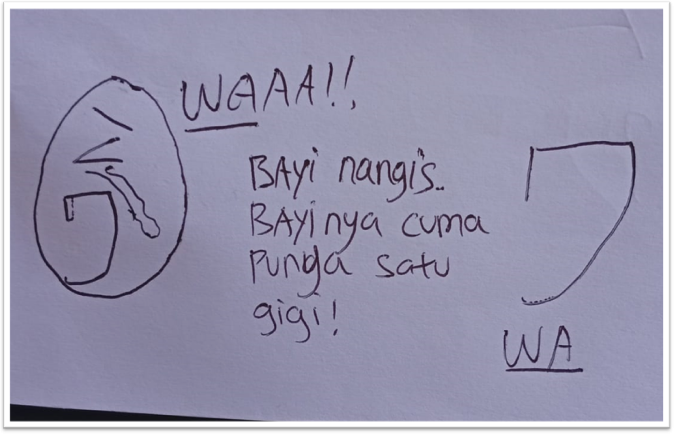 WAAA!!
BAyi nangis..
BAyinya cuma
Punya satu
gigi!
ワ
WA